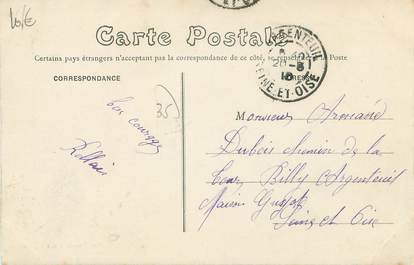 10/E
Carte Postale
Certains pays étrangers n'acceptant pas la correspondance de ce côté, se renseigner à la Poste
ARGENTEUIL
20 -8
10
SEINE-ET-OISE
CORRESPONDANCE
35
bon courage
Monsieur Armand
Dubois chemin de la
Tour Billy Argenteuil
Maison
Seine et Oise